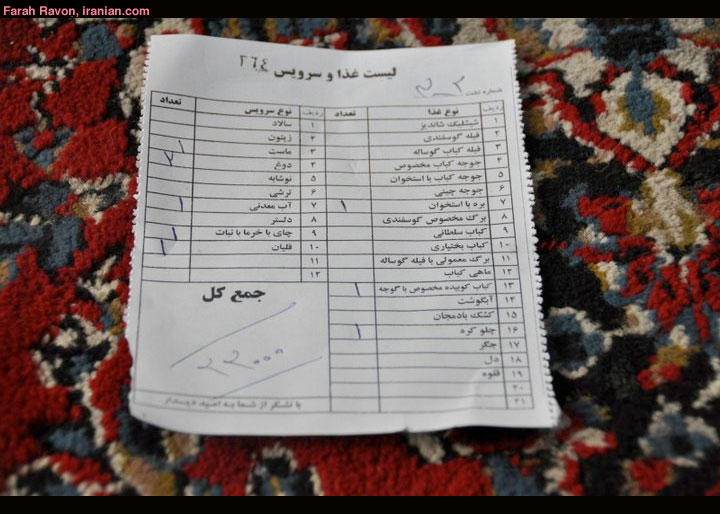 Farah Ravon, iranian.com
لیست غذا و سرویس ۲۶۴
شماره تخت
ردیف نوع غذا تعداد
۱ شیشلیک شاندیز
۲ فیله گوسفندی
۳ فیله کباب گوساله
۴ جوجه کباب مخصوص
۵ جوجه کباب با استخوان
۶ جوجه چینی
۷ بره با استخوان ۱
۸ برگ مخصوص گوسفندی
۹ کباب سلطانی
۱۰ کباب بختیاری
۱۱ برگ معمولی با فیله گوساله
۱۲ ماهی کباب
۱۳ کباب کوبیده مخصوص با گوجه ۱
۱۴ آبگوشت
۱۵ کشک بادمجان
۱۶ چلو کره ۱
۱۷ جگر
۱۸ دل
۱۹ قلوه
۲۰
۲۱
ردیف نوع سرویس تعداد
۱ سالاد
۲ زیتون
۳ ماست
۴ دوغ
۵ نوشابه
۶ ترشی
۷ آب معدنی ۱
۸ دلستر
۹ چای با خرما با نبات
۱۰ قلیان
۱۱
۱۲
جمع کل
۲۲۰۰۰
با تشکر از شما به امید دیدار